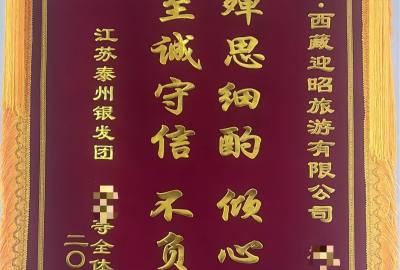 ·西藏迎昭旅游有限公司
殚思细酌 倾心
至诚守信 不负
江苏泰州银发团 等全体
二〇